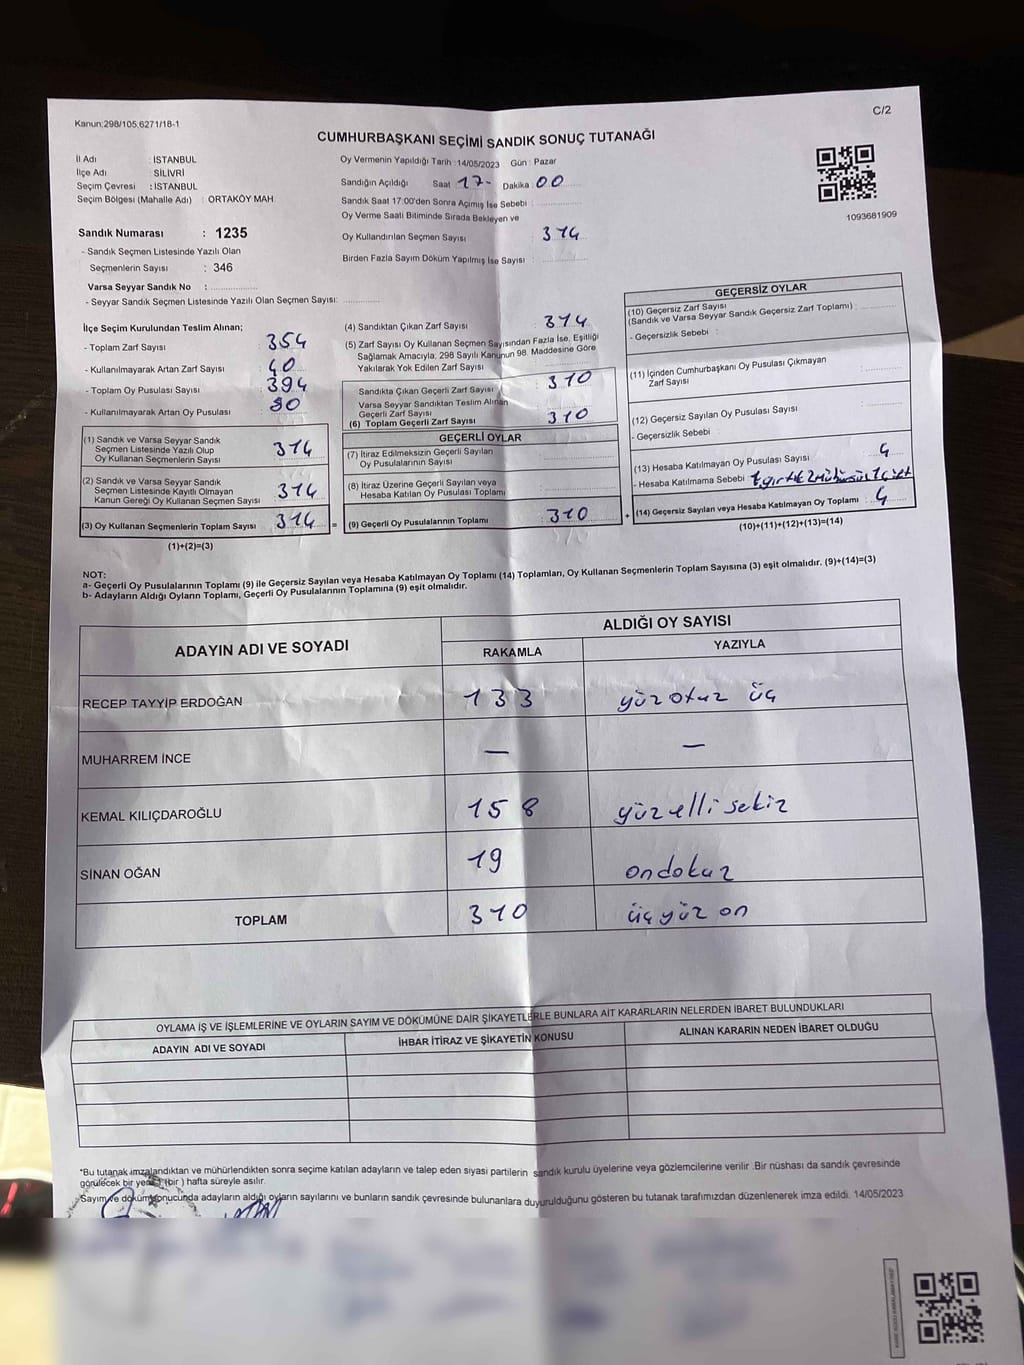 Kanun:298/105,6271/18-1
C/2
CUMHURBAŞKANI SEÇİMİ SANDIK SONUÇ TUTANAĞI
İl Adı : İSTANBUL
İlçe Adı : SİLİVRİ
Seçim Çevresi : İSTANBUL
Seçim Bölgesi (Mahalle Adı) : ORTAKÖY MAH.
Sandık Numarası : 1235
- Sandık Seçmen Listesinde Yazılı Olan
Seçmenlerin Sayısı : 346
Varsa Seyyar Sandık No :
- Seyyar Sandık Seçmen Listesinde Yazılı Olan Seçmen Sayısı:
Oy Vermenin Yapıldığı Tarih :14/05/2023 Gün : Pazar
Sandığın Açıldığı Saat 17- Dakika : 00
Sandık Saat 17:00'den Sonra Açımış İse Sebebi :
Oy Verme Saati Bitiminde Sırada Bekleyen ve
Oy Kullandırılan Seçmen Sayısı : 314
Birden Fazla Sayım Döküm Yapılmış İse Sayısı :
1093681909
İlçe Seçim Kurulundan Teslim Alınan;
- Toplam Zarf Sayısı : 354
- Kullanılmayarak Artan Zarf Sayısı : 40
- Toplam Oy Pusulası Sayısı : 394
- Kullanılmayarak Artan Oy Pusulası : 80
(1) Sandık ve Varsa Seyyar Sandık
Seçmen Listesinde Yazılı Olup
Oy Kullanan Seçmenlerin Sayısı : 314
(2) Sandık ve Varsa Seyyar Sandık
Seçmen Listesinde Kayıtlı Olmayan
Kanun Gereği Oy Kullanan Seçmen Sayısı : 314
(3) Oy Kullanan Seçmenlerin Toplam Sayısı : 314 =
(1)+(2)=(3)
(4) Sandıktan Çıkan Zarf Sayısı : 314
(5) Zarf Sayısı Oy Kullanan Seçmen Sayısından Fazla İse, Eşitliği
Sağlamak Amacıyla, 298 Sayılı Kanunun 98. Maddesine Göre
Yakılarak Yok Edilen Zarf Sayısı :
Sandıkta Çıkan Geçerli Zarf Sayısı : 310
Varsa Seyyar Sandıktan Teslim Alınan
Geçerli Zarf Sayısı
(6) Toplam Geçerli Zarf Sayısı : 310
GEÇERLİ OYLAR
(7) İtiraz Edilmeksizin Geçerli Sayılan
Oy Pusulalarının Sayısı :
(8) İtiraz Üzerine Geçerli Sayılan veya
Hesaba Katılan Oy Pusulası Toplamı :
(9) Geçerli Oy Pusulalarının Toplamı : 310 +
GEÇERSİZ OYLAR
(10) Geçersiz Zarf Sayısı
(Sandık ve Varsa Seyyar Sandık Geçersiz Zarf Toplamı) :
- Geçersizlik Sebebi :
(11) İçinden Cumhurbaşkanı Oy Pusulası Çıkmayan
Zarf Sayısı :
(12) Geçersiz Sayılan Oy Pusulası Sayısı :
- Geçersizlik Sebebi :
(13) Hesaba Katılmayan Oy Pusulası Sayısı : 4
- Hesaba Katılmama Sebebi :
(14) Geçersiz Sayılan veya Hesaba Katılmayan Oy Toplamı : 4
(10)+(11)+(12)+(13)=(14)
NOT:
a- Geçerli Oy Pusulalarının Toplamı (9) ile Geçersiz Sayılan veya Hesaba Katılmayan Oy Toplamı (14) Toplamları, Oy Kullanan Seçmenlerin Toplam Sayısına (3) eşit olmalıdır. (9)+(14)=(3)
b- Adayların Aldığı Oyların Toplamı, Geçerli Oy Pusulalarının Toplamına (9) eşit olmalıdır.
ADAYIN ADI VE SOYADI
ALDIĞI OY SAYISI
RAKAMLA YAZIYLA
RECEP TAYYİP ERDOĞAN 133 yüz otuz üç
MUHARREM İNCE — —
KEMAL KILIÇDAROĞLU 158 yüz elli sekiz
SİNAN OĞAN 19 ondokuz
TOPLAM 310 üç yüz on
OYLAMA İŞ VE İŞLEMLERİNE VE OYLARIN SAYIM VE DÖKÜMÜNE DAİR ŞİKAYETLERLE BUNLARA AİT KARARLARIN NELERDEN İBARET BULUNDUKLARI
ADAYIN ADI VE SOYADI İHBAR İTİRAZ VE ŞİKAYETİN KONUSU ALINAN KARARIN NEDEN İBARET OLDUĞU
*Bu tutanak imzalandıktan ve mühürlendikten sonra seçime katılan adayların ve talep eden siyasi partilerin sandık kurulu üyelerine veya gözlemcilerine verilir .Bir nüshası da sandık çevresinde
görülecek bir yere 1 (bir ) hafta süreyle asılır.
Sayım ve döküm sonucunda adayların aldığı oyların sayılarını ve bunların sandık çevresinde bulunanlara duyurulduğunu gösteren bu tutanak tarafımızdan düzenlenerek imza edildi. 14/05/2023